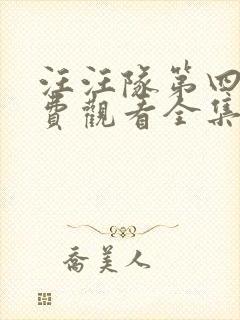 汪汪隊第四
費觀看全集
喬美人